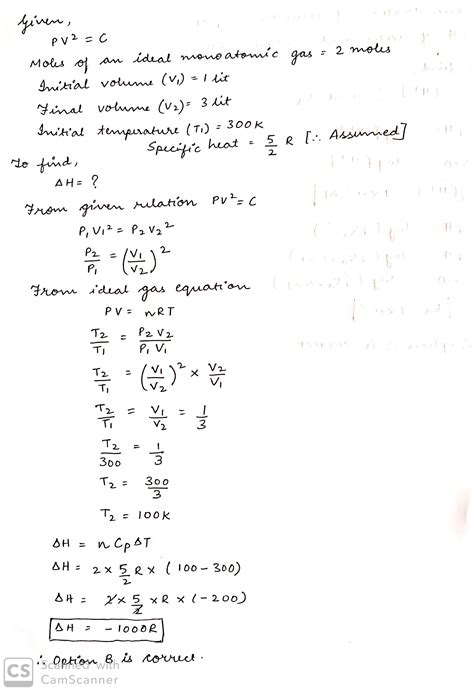 Given,
PV² = C
Moles of an ideal monoatomic gas = 2 moles
Initial volume (V₁) = 1 lit
Final volume (V₂) = 3 lit
Initial temperature (T₁) = 300K
Specific heat = 5/2 R [∴ Assumed]
To find,
ΔH = ?
From given relation PV² = C
P₁V₁² = P₂V₂²
P₂/P₁ = (V₁/V₂)²
From ideal gas equation
PV = nRT
T₂/T₁ = P₂V₂/P₁V₁
T₂/T₁ = (V₁/V₂)² × V₂/V₁
T₂/T₁ = V₁/V₂ = 1/3
T₂/300 = 1/3
T₂ = 300/3
T₂ = 100K
ΔH = nCpΔT
ΔH = 2 × 5/2 R × (100 - 300)
ΔH = 2 × 5/2 × R × (-200)
ΔH = -1000R
∴ Option B is correct.
CS Scanned with
CamScanner